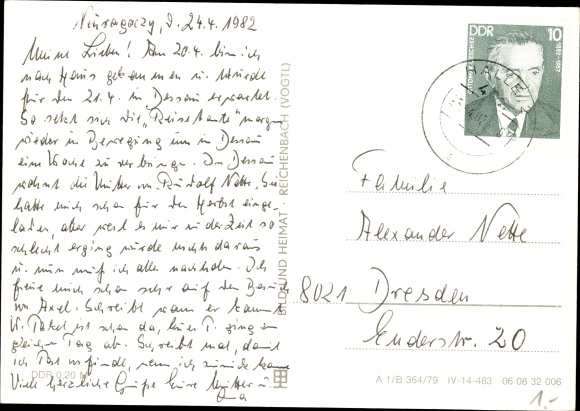 Neuragoczy, d. 24.4.1982
Meine Lieben! Am 20.4. bin ich
nach Haus gekommen u. wurde
für den 21.4. in Dessau erwartet.
So setzt sich die "Reisetante" morgen
wieder in Bewegung um in Dessau
eine Woche zu verbringen. In Dessau
wohnt die Mutter von Rudolf Nette. Sie
hatte mich schon für den Herbst einge-
laden, aber weil es mir in der Zeit so
schlecht erging wurde nichts daraus
u. nun muß ich alles nachholen. Ich
freue mich schon sehr auf den Besuch
von Axel. Schreibt wann er kommt
ist schon da, ging am
gleichen Tag ab. Schreibt mal, damit
ich Post vorfinde, wenn ich zurück komme
Viele herzliche Grüße Eure Mutter u.
Oma
DDR 0,20 M
BILD UND HEIMAT · REICHENBACH (VOGTL)
DDR 10
1882-1927
HALLE
4
Familie
Alexander Nette
8021 Dresden
Enderstr. 20
A 1/B 364/79 IV-14-483 06 08 32 006
1.-